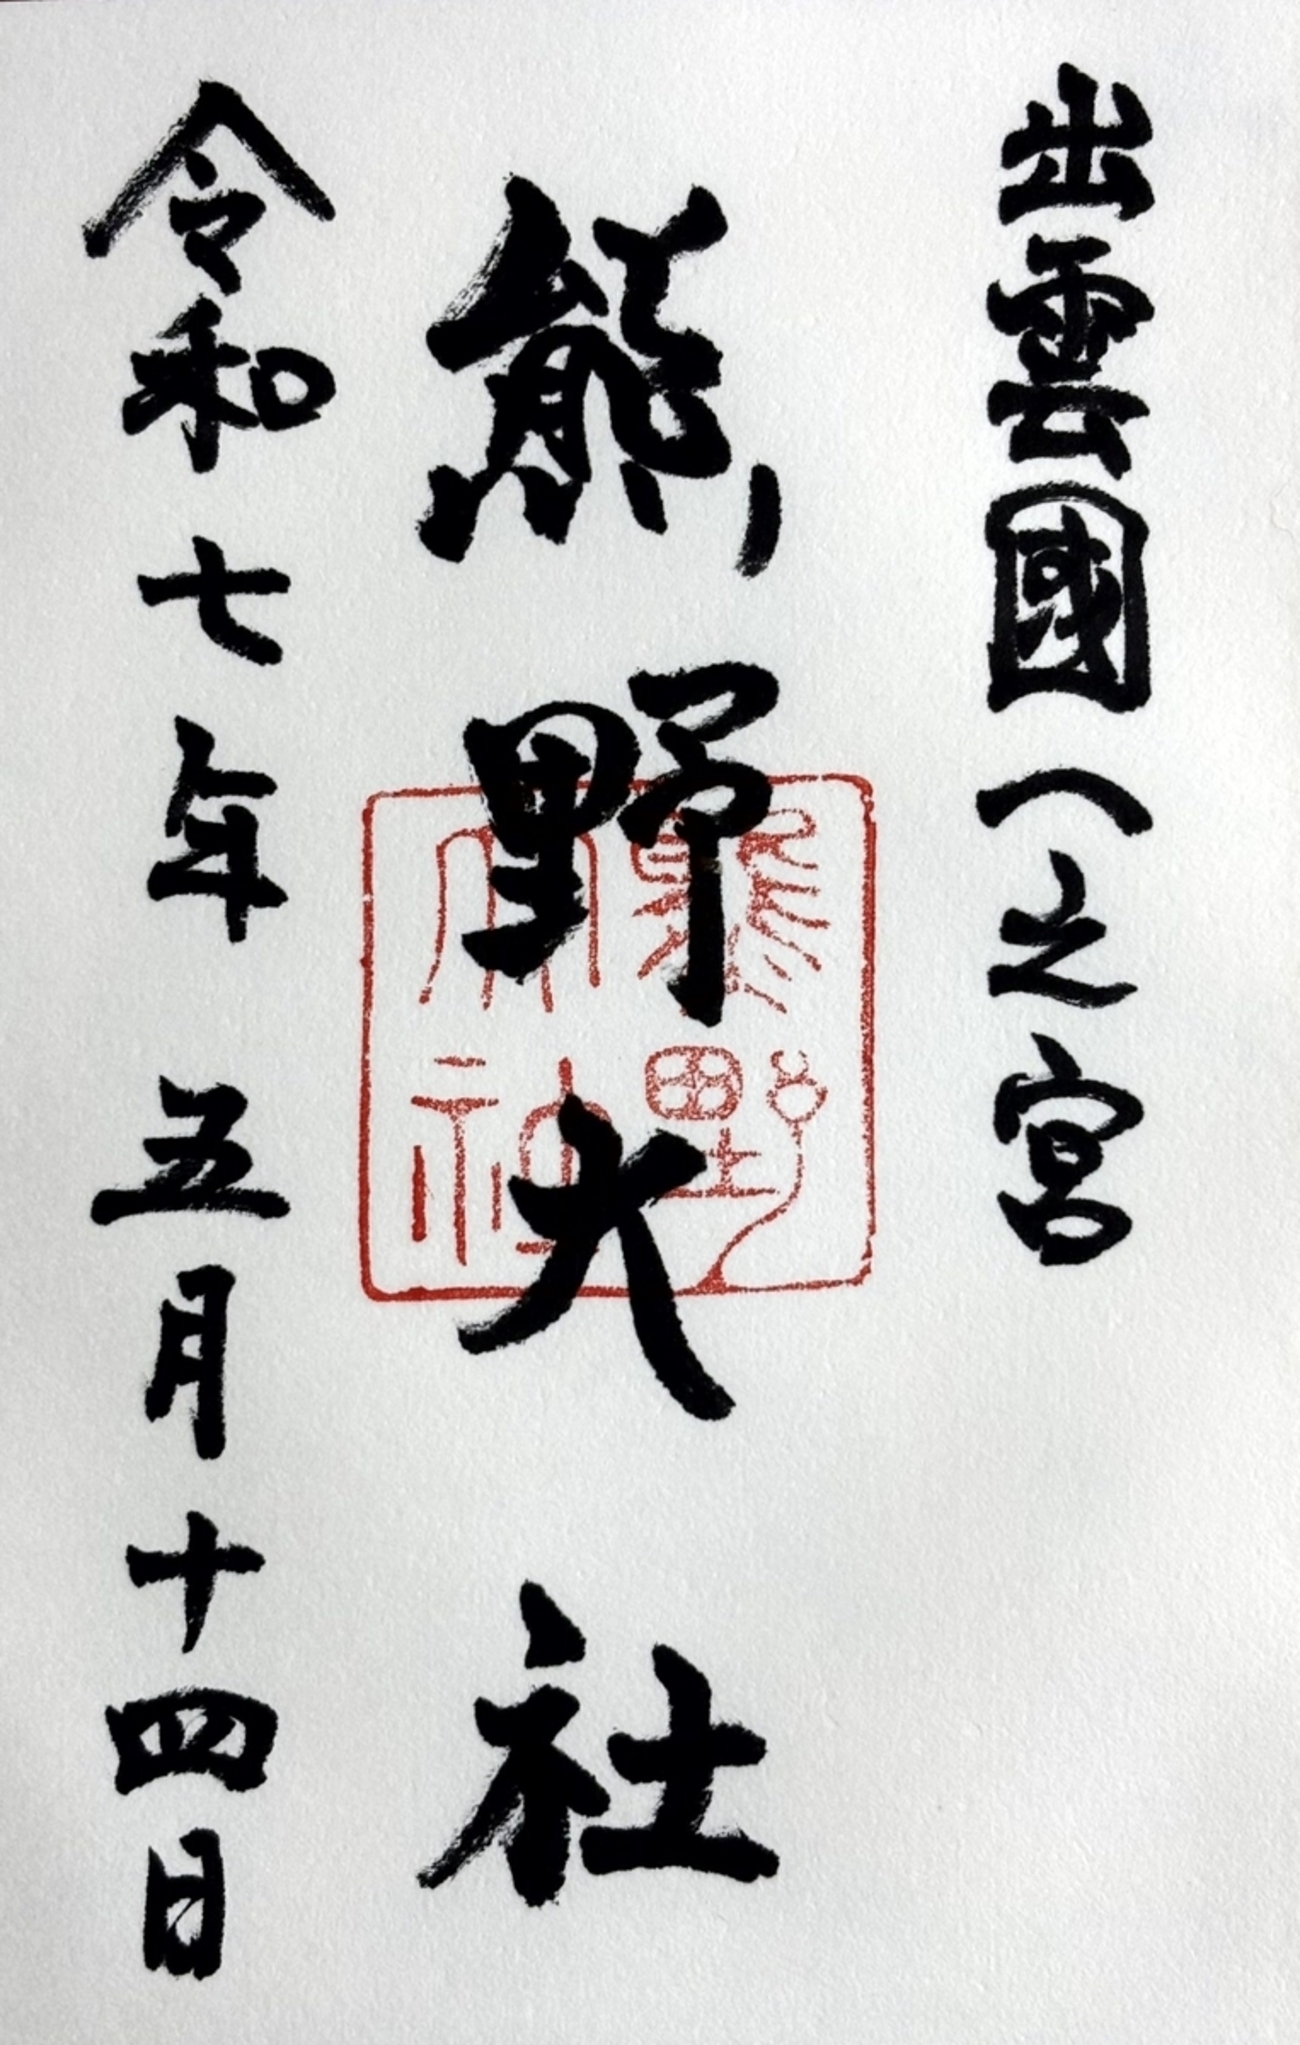 出雲國一之宮
熊野大社
熊野
大神
令和七年 五月十四日